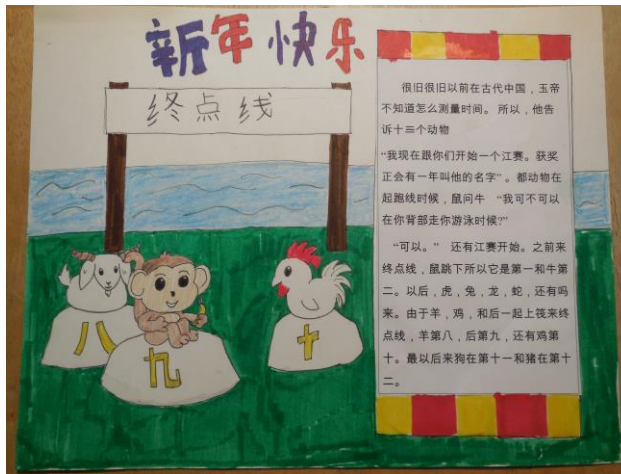 新年快乐
终点线
八
九
十
很旧很旧以前在古代中国，玉帝
不知道怎么测量时间。 所以，他告
诉十三个动物
“我现在跟你们开始一个江赛。获奖
正会有一年叫他的名字” 。都动物在
起跑线时候，鼠问牛 “我可不可以
在你背部走你游泳时候?”
“可以。” 还有江赛开始。之前来
终点线，鼠跳下所以它是第一和牛第
二。以后，虎，兔，龙，蛇，还有吗
来。由于羊，鸡，和后一起上筏来终
点线，羊第八，后第九，还有鸡第
十。最以后来狗在第十一和猪在第十
二。